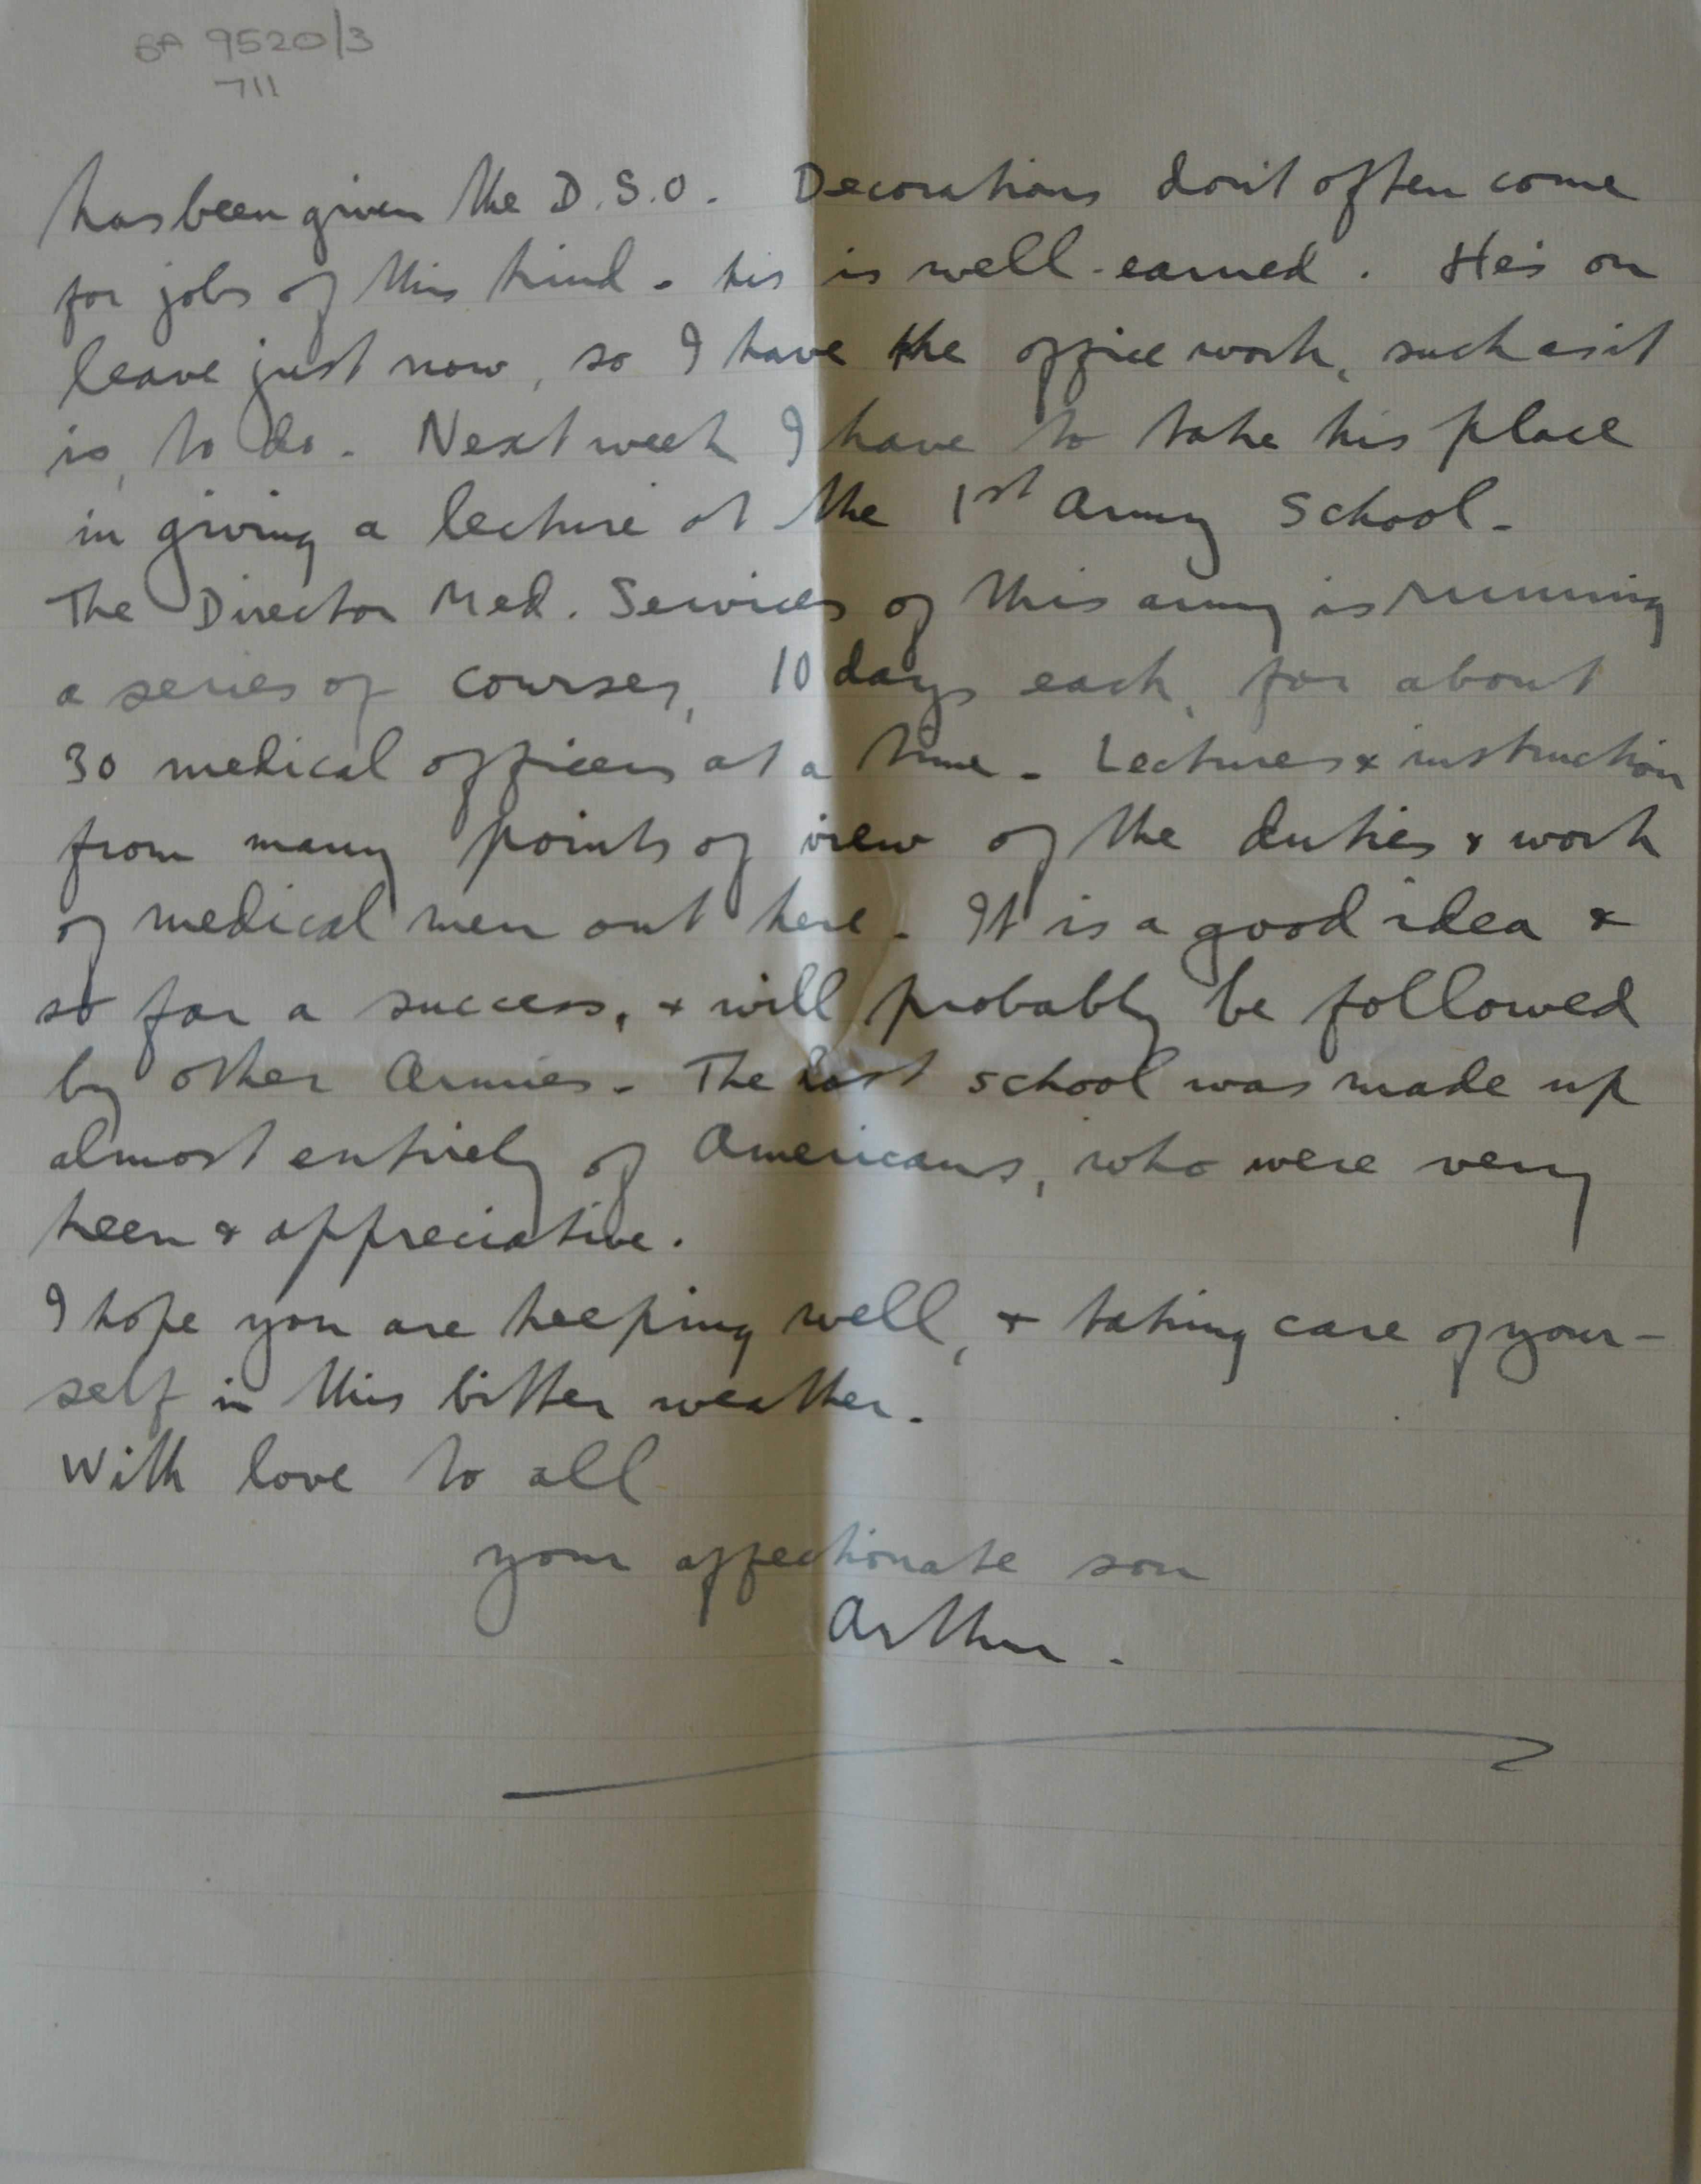 BA 9520/3
711
has been given the D.S.O. Decorations don't often come
for jobs of this kind - his is well-earned. He's on
leave just now, so I have the office work, such as it
is, to do. Next week I have to take his place
in giving a lecture at the 1st Army School.
The Director Med. Services of this army is running
a series of courses, 10 days each, for about
30 medical officers at a time - Lectures & instruction
from many points of view of the duties & work
of medical men out here. It is a good idea &
so far a success, & will probably be followed
by other Armies. The last school was made up
almost entirely of Americans, who were very
keen & appreciative.
I hope you are keeping well, & taking care of your-
self in this bitter weather.
With love to all
your affectionate son
Arthur.